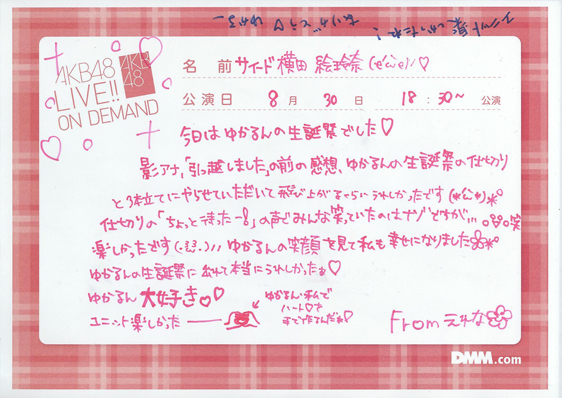 AKB48
LIVE!!
ON DEMAND
AKB
48
名前 サイード横田 絵玲奈
公演日 8月 30日 18:30~ 公演
今日はゆかるんの生誕祭でした♡
影アナ、「引っ越しました」の前の感想、ゆかるんの生誕祭の仕切り
と3本立てにやらせていただいて飛び上がるくらいうれしかったです
仕切りの「ちょっと待ったー!」の声でみんな笑っていたのはナゾですが… 笑
楽しかったです ゆかるんの笑顔を見て私も幸せになりました
ゆかるんの生誕祭に出れて本当にうれしかったぁ♡
ゆかるん大好き♡♡
ユニット楽しかった
ゆかるんと私で
ハート♡を
手で作るんだぁ♡
From えれな
DMM.com